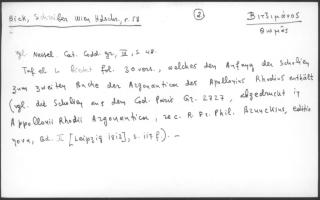 Bick, Schreiber Wien. Hdschr., n. 58
②
Βιτζιμάνος
Θωμᾶς
Vgl. Nessel. Cat. Codd. gr., IV, S. 48.
Tafel L bietet fol. 30 vers., welches den Anfang der Scholien
zum zweiten Buche der Argonautica des Apollonius Rhodius enthält
(vgl. die Scholien aus dem Cod. Paris. Gr. 2727, abgedruckt in
Apollonii Rhodii Argonautica, rec. R. Fr. Phil. Brunckius, editio
nova, Bd. II [Leipzig 1813], S. 117 f.). —